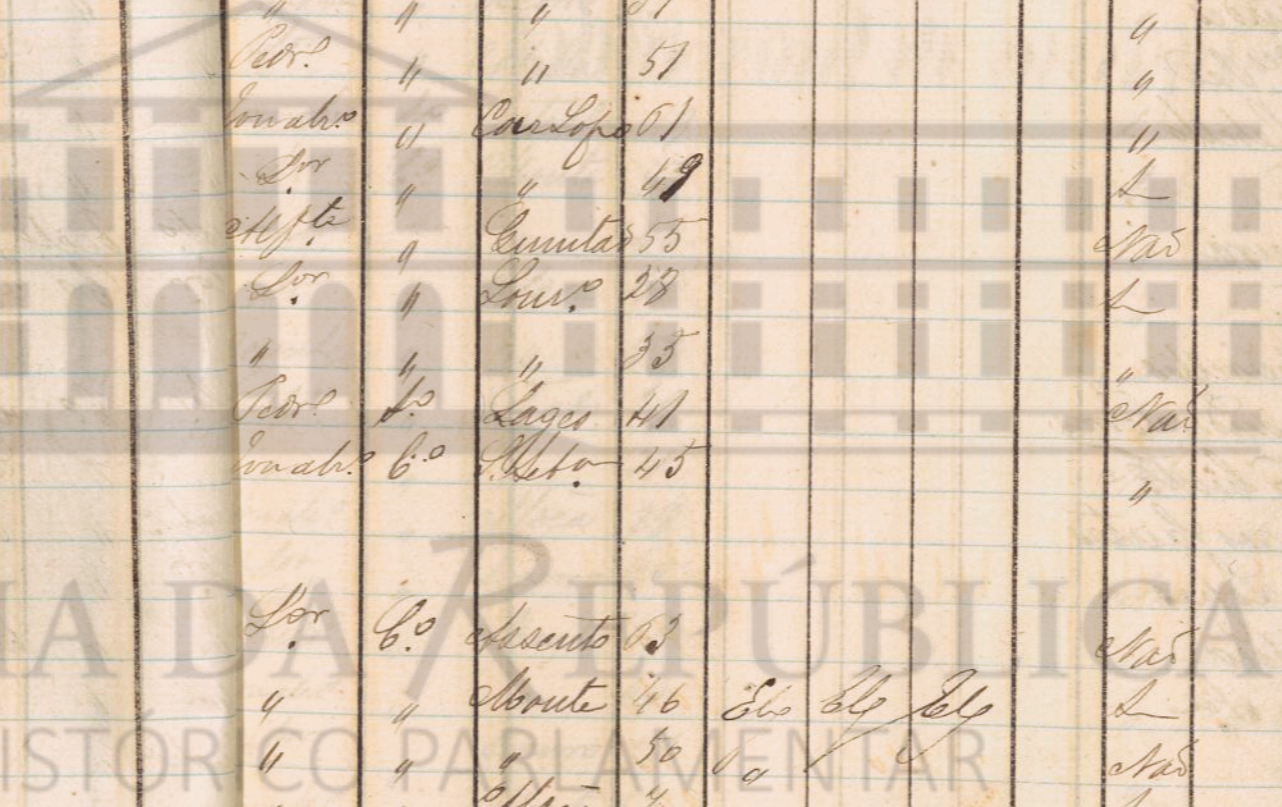 " " " "
Pedr.º " " 51 "
Jornalr.º " Car Lopo 61 "
Lor " " 49 S
Alf.te " Ermitas 55 Não
L.or " Lour.º 28 S
" " " 35 "
Pedr.º S.º Lages 41 Não
Jornalr.º C.º S. Seb.am 45 "
L.or C.º Assento 63 Não
" " Monte 46 Ele Ele Ele S
" " " 50 " " Não
A DA REPÚBLICA
HISTÓRICO PARLAMENTAR